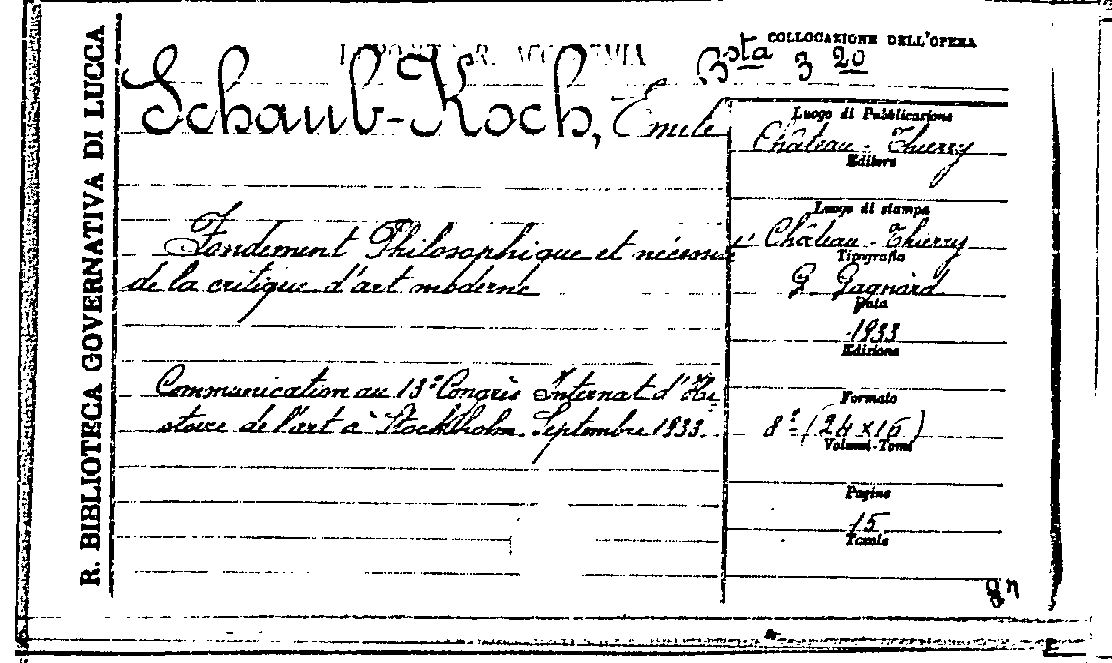 R. BIBLIOTECA GOVERNATIVA DI LUCCA
COLLOCAZIONE DELL'OPERA
Bsta 3 20
Schaub-Koch, Emile
Fondement Philosophique et
de la critique d'art moderne
Communication au 13e Congrès Internat d'Hi
stoire de l'art à Stockholm. Septembre 1933.
Luogo di Pubblicazione
Château-Thierry
Editore
Luogo di stampa
Château-Thierry
Tipografia
G. Gagnard
Data
1933
Edizione
Formato
8° (24x16)
Volumi-Tomi
Pagine
15
Tavole